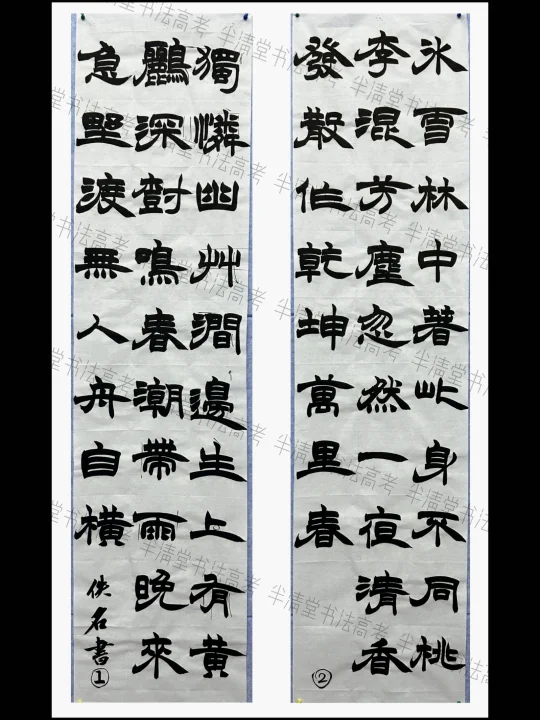 獨憐幽艸澗邊生上有黃
鸝深對鳴春潮帶雨晚來
急野渡無人舟自橫
佚名書
①
冰雪林中著此身不同桃
李混芳塵忽然一夜清香
發散作乾坤萬里春
②
半清堂书法高考